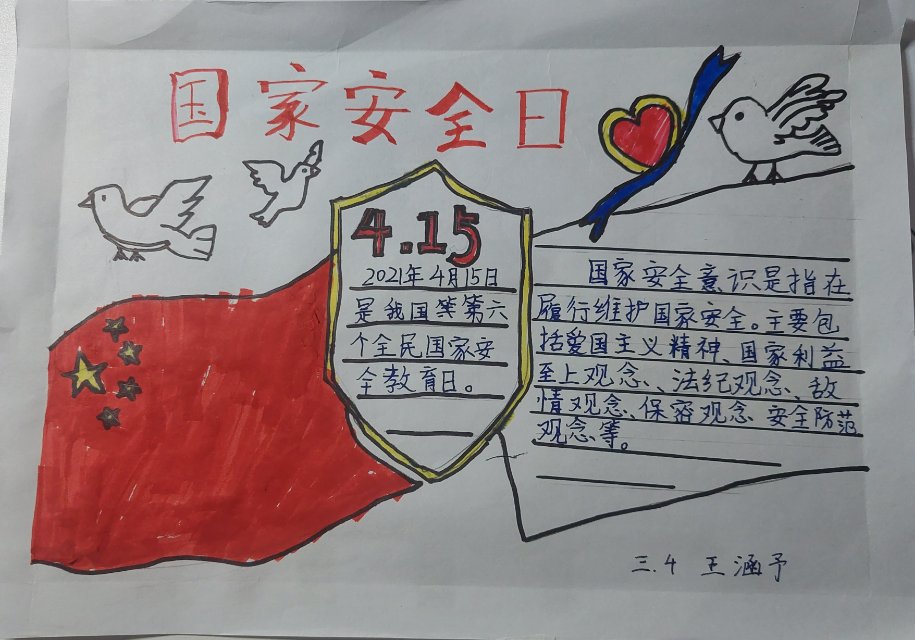 国家安全日
4.15
2021年4月15日
是我国第第六
个全民国家安
全教育日。
国家安全意识是指在
履行维护国家安全。主要包
括爱国主义精神、国家利益
至上观念、、法纪观念、敌
情观念、保密观念 安全防范
观念等。
三.4 王涵予